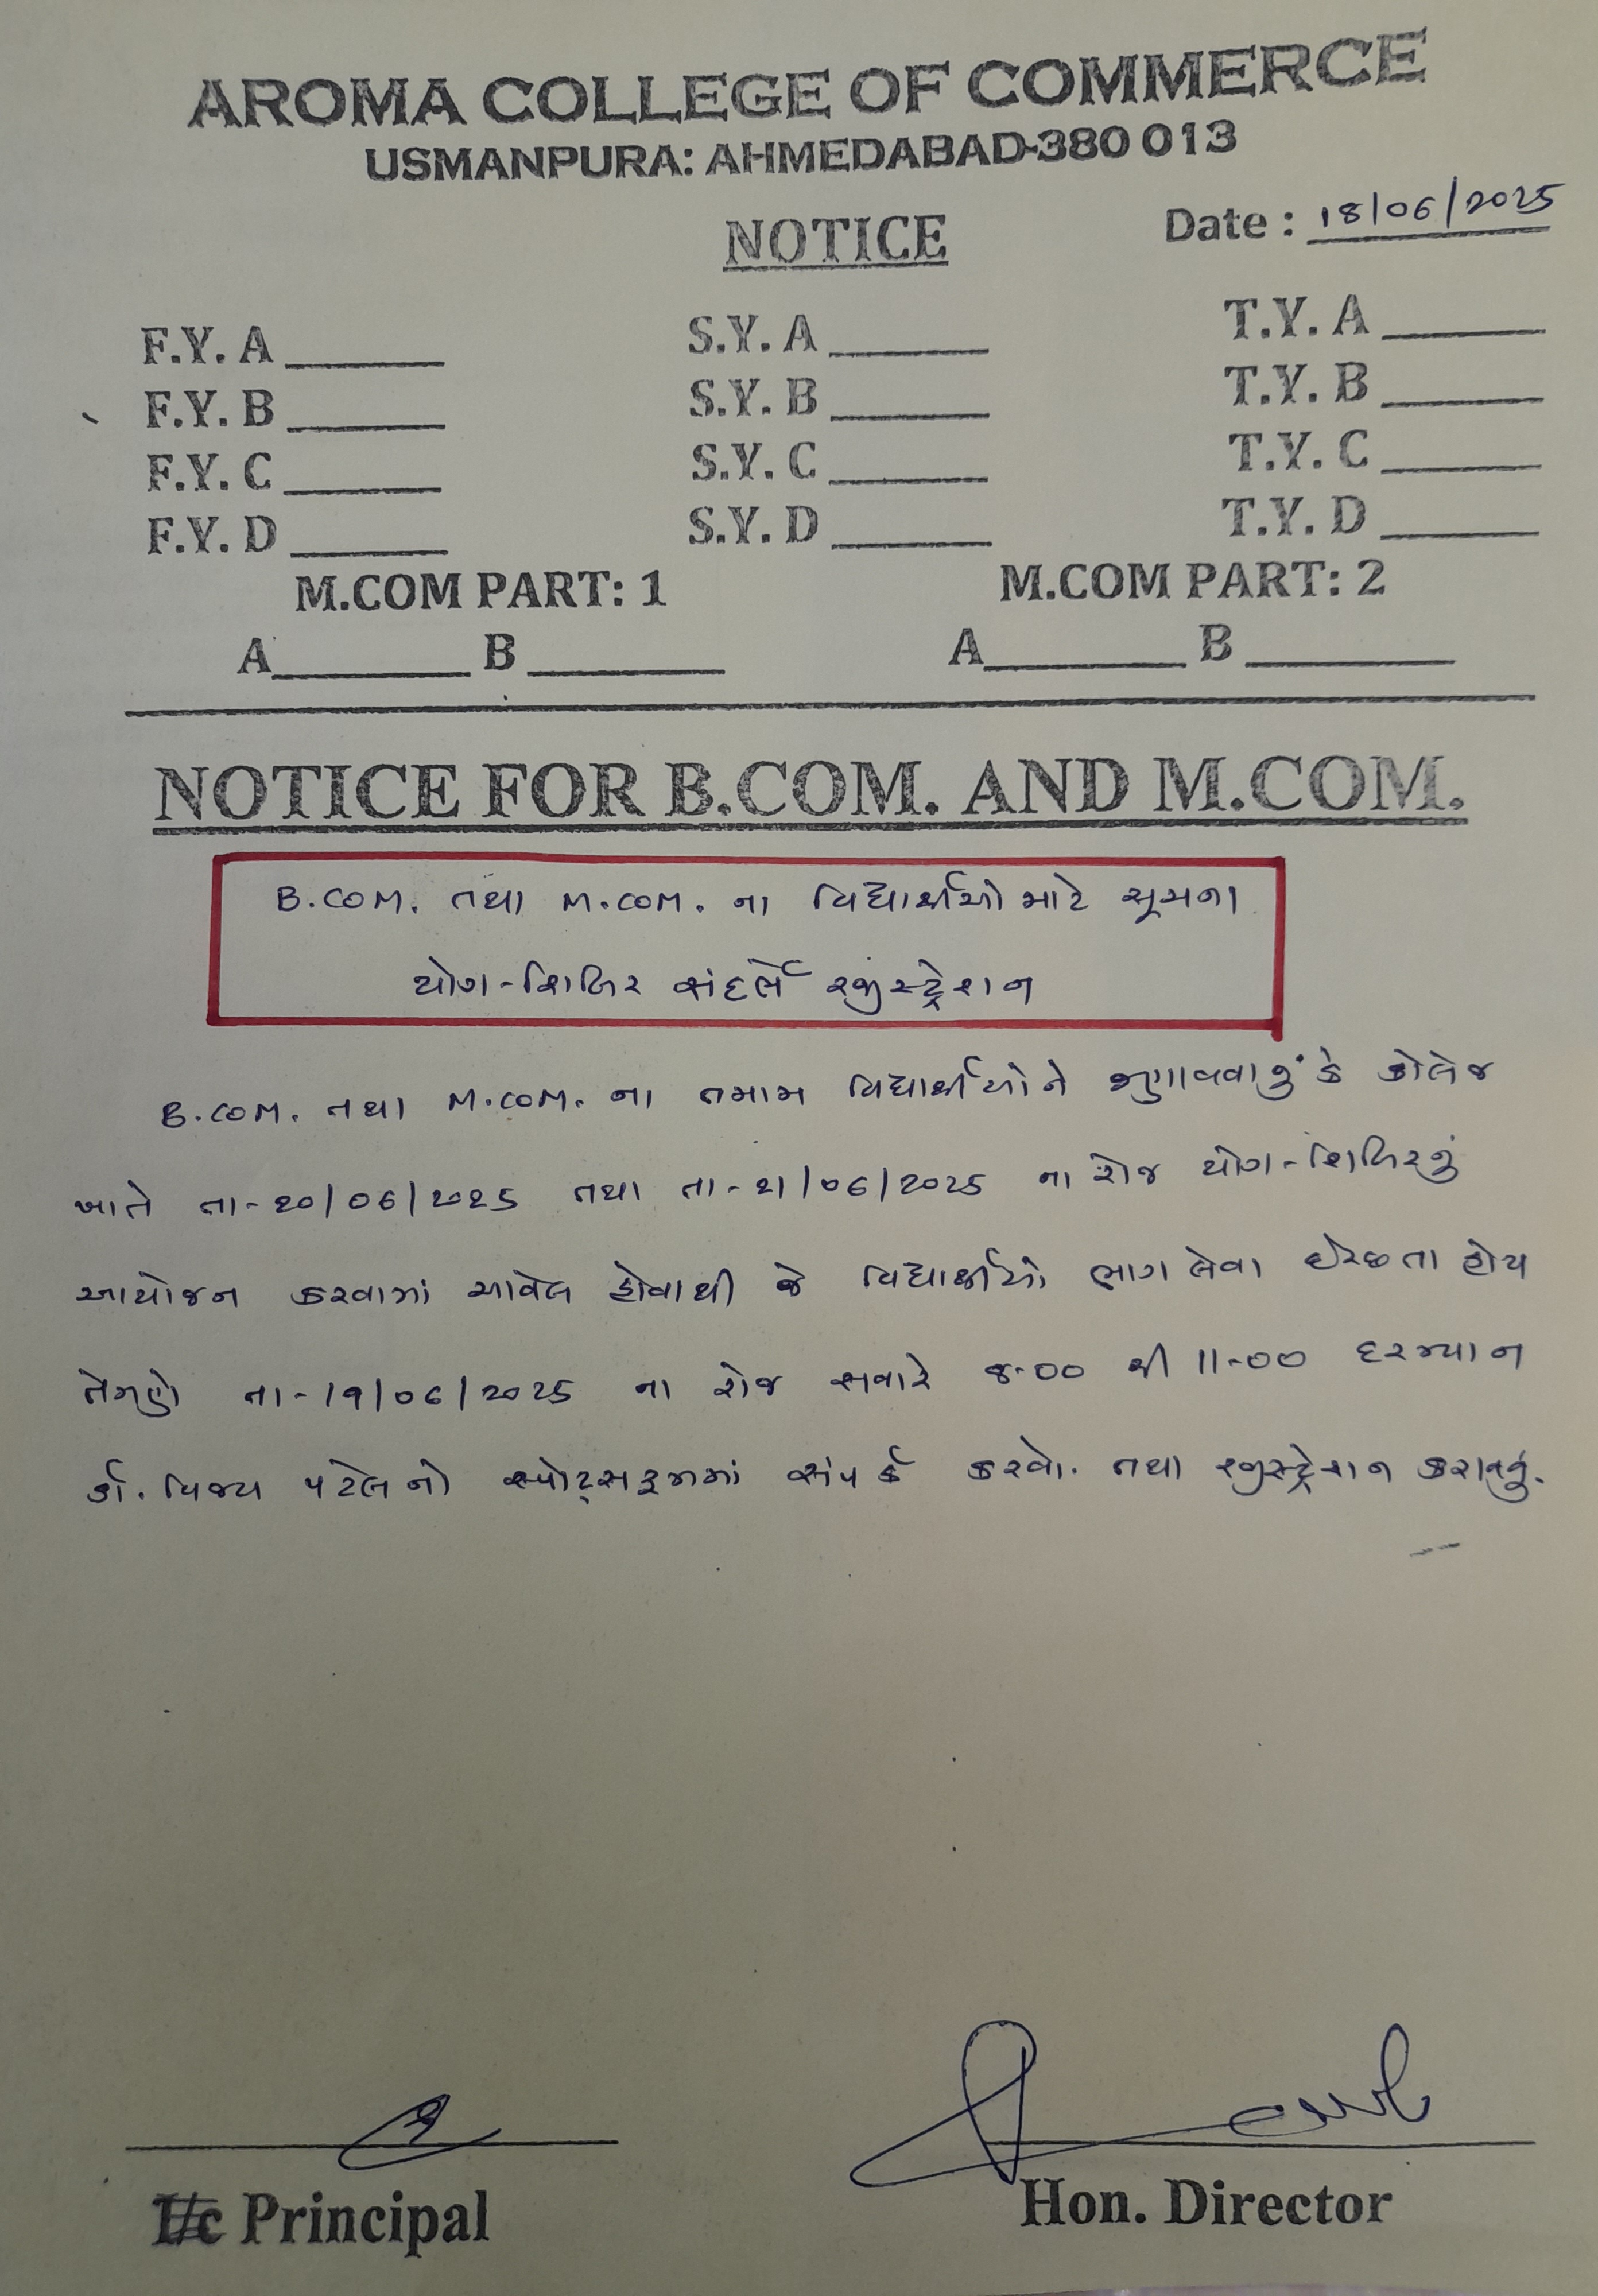 AROMA COLLEGE OF COMMERCE
USMANPURA: AHMEDABAD-380 013
NOTICE
Date : 18/06/2025
F.Y. A ______ S.Y. A ______ T.Y. A ______
F.Y. B ______ S.Y. B ______ T.Y. B ______
F.Y. C ______ S.Y. C ______ T.Y. C ______
F.Y. D ______ S.Y. D ______ T.Y. D ______
M.COM PART: 1 M.COM PART: 2
A______ B______ A______ B______
NOTICE FOR B.COM. AND M.COM.
B.COM. તથા M.COM. ના વિદ્યાર્થીઓ માટે સૂચના
યોગ-શિબિર સંદર્ભે રજીસ્ટ્રેશન
B.COM. તથા M.COM. ના તમામ વિદ્યાર્થીઓને જણાવવાનું કે કોલેજ
ખાતે તા-20/06/2025 તથા તા-21/06/2025 ના રોજ યોગ-શિબિરનું
આયોજન કરવામાં આવેલ હોવાથી જે વિદ્યાર્થીઓ ભાગ લેવા ઈચ્છતા હોય
તેમણે તા-19/06/2025 ના રોજ સવારે 8-00 થી 11-00 દરમ્યાન
ડૉ. વિજય પટેલનો સ્પોટ્સરૂમમાં સંપર્ક કરવો. તથા રજીસ્ટ્રેશન કરાવવું.
I/c Principal
Hon. Director